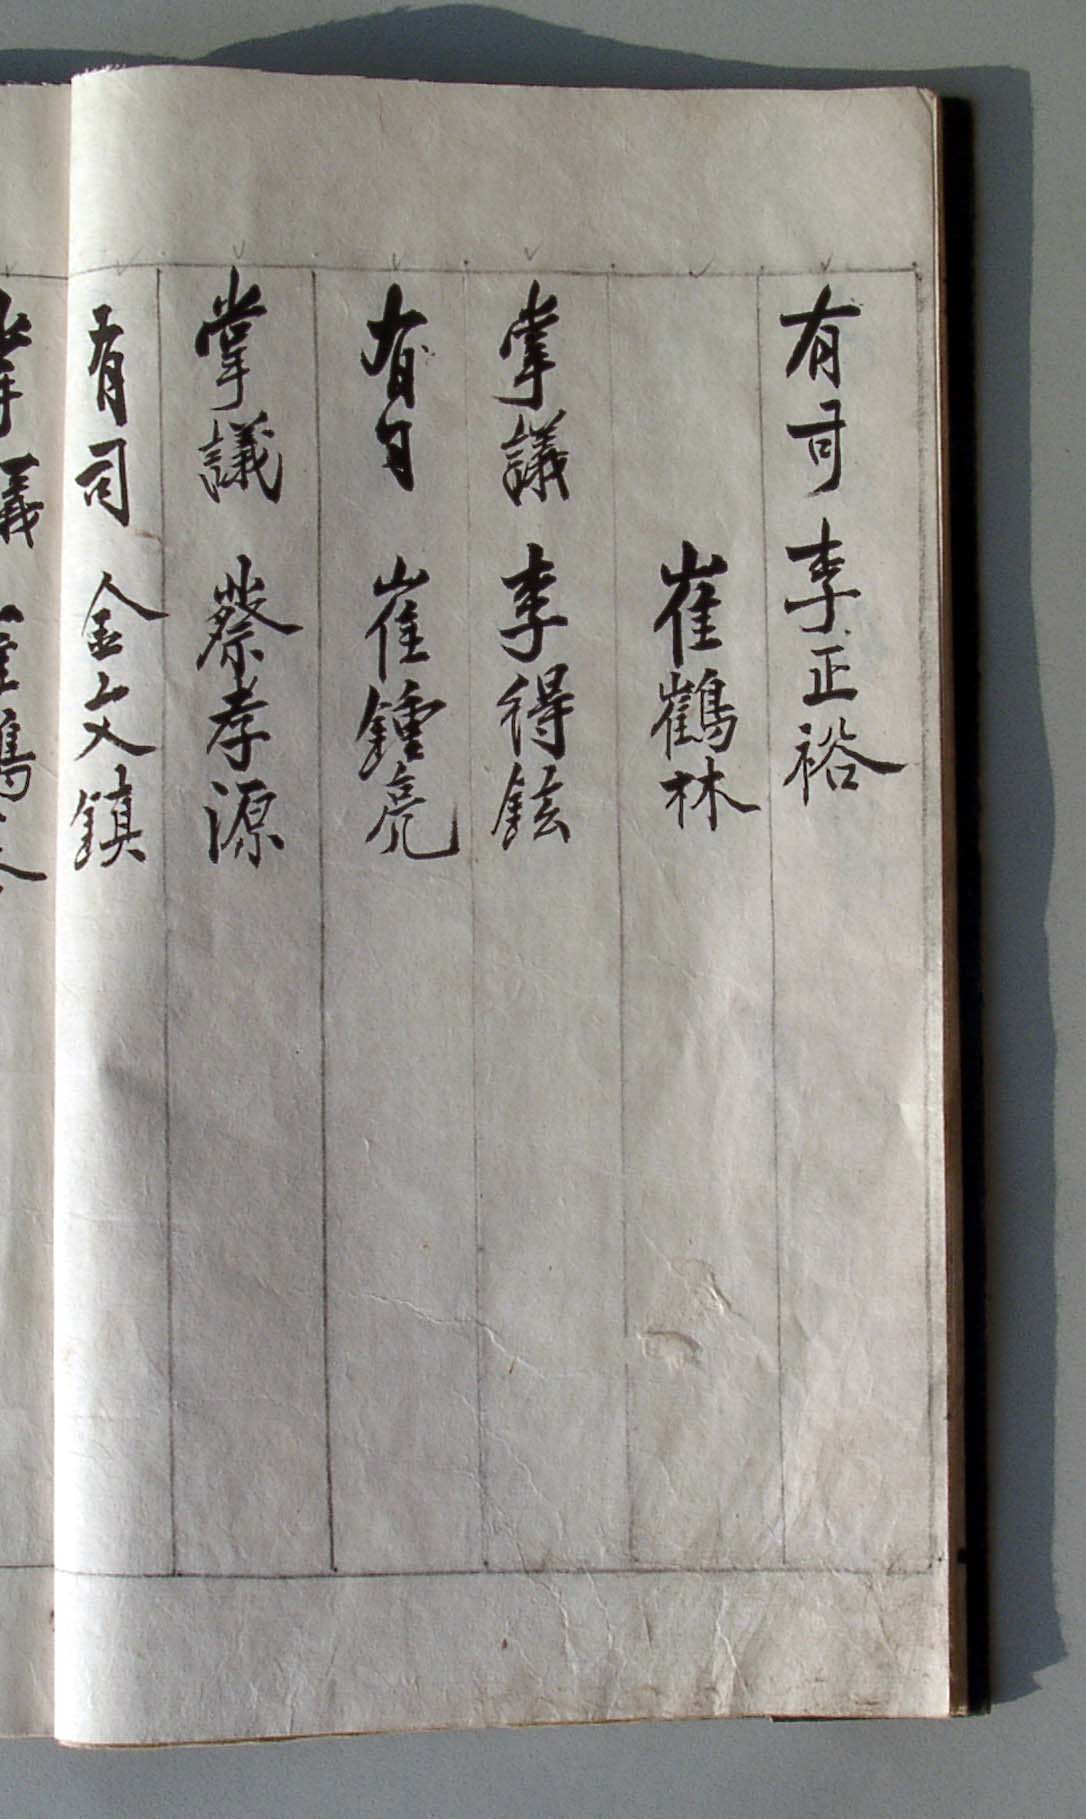 有司 李正裕
崔鶴林
掌議 李得鉉
有司 崔鍾亮
掌議 蔡孝源
有司 金文鎮
掌議 崔鶴